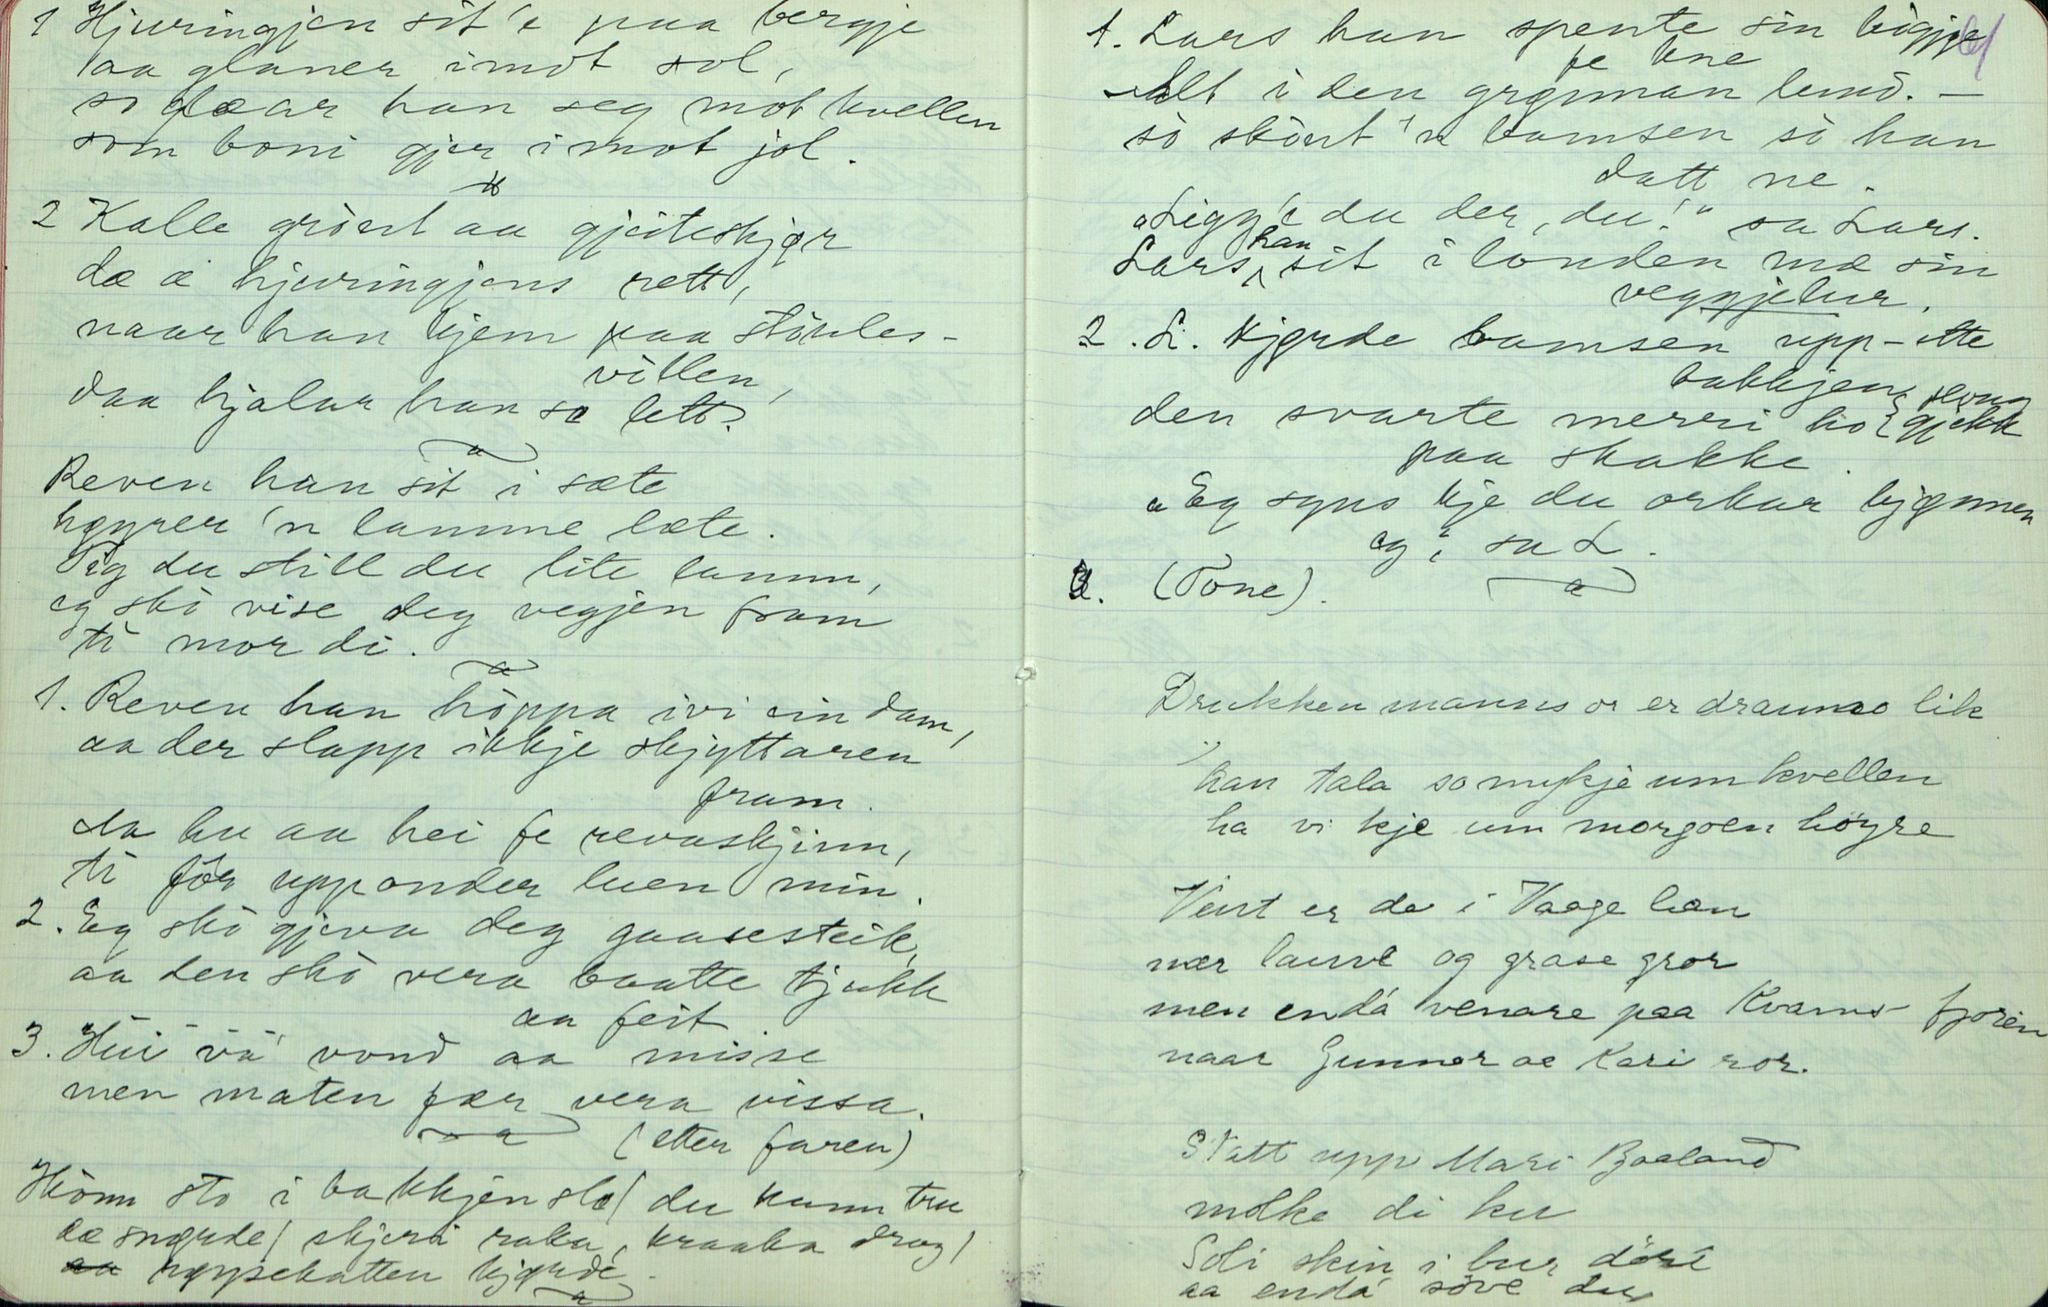 1 Hjuringjen sit'e paa bergje
aa glaner imot sol,
so læar han seg mot kvellen
som boni gjer imot jol.
2 Kalle grönt aa gjeiteskjør
dæ æ hjuringjens rett,
naar han kjem paa stöules-
villen,
daa hjalar han so lett.
Reven han sit i sæte
høyrer 'n lamme læte.
Tig du still du lite lamm,
eg skö vise deg vegjen fram
ti mor di.
1. Reven han höppa ivi ein dam,
aa der slapp ikkje skjyttaren
fram.
da hu aa hei fe revaskjinn,
ti för upponder luen min.
2. Eg skö gjeva deg gaasesteik,
aa den skö vera baatte tjukk
aa feit
3. Hui va vond aa misse
men maten fær vera vissa.
(etter faren)
Hönn sto i bakkjen slo/ du kunn tru
dæ snørde/ skjeri raka, kraaka drog/
røysekatten kjørde.
1. Lars han spente sin bøgje
fe kne
Alt i den grønnan lund. —
sö skönt 'n bamsen sö han
datt ne.
"Ligg'e du der, du!" sa Lars.
Lars han sit i londen mæ sin
veggjelur.
2. L. kjørde bamsen upp-ette
bakkjen,
den svarte merri ho gjekk
paa skakke.
"Eg syns kje du orkar kjømen
eg", sa L.
3. (Tone).
Drukken manns or er draumo lik
han tala so mykje um kvellen
ha vi kje um morgoen høyre
Vent er de i Vaage læn
nær lauve og grase gror
men endá venare paa Kvams- fjoren
naar Gunnar ae Kari ror.
Statt upp Mari Baaland
molke di ku
Soli skin i bur döri
aa endá söve du